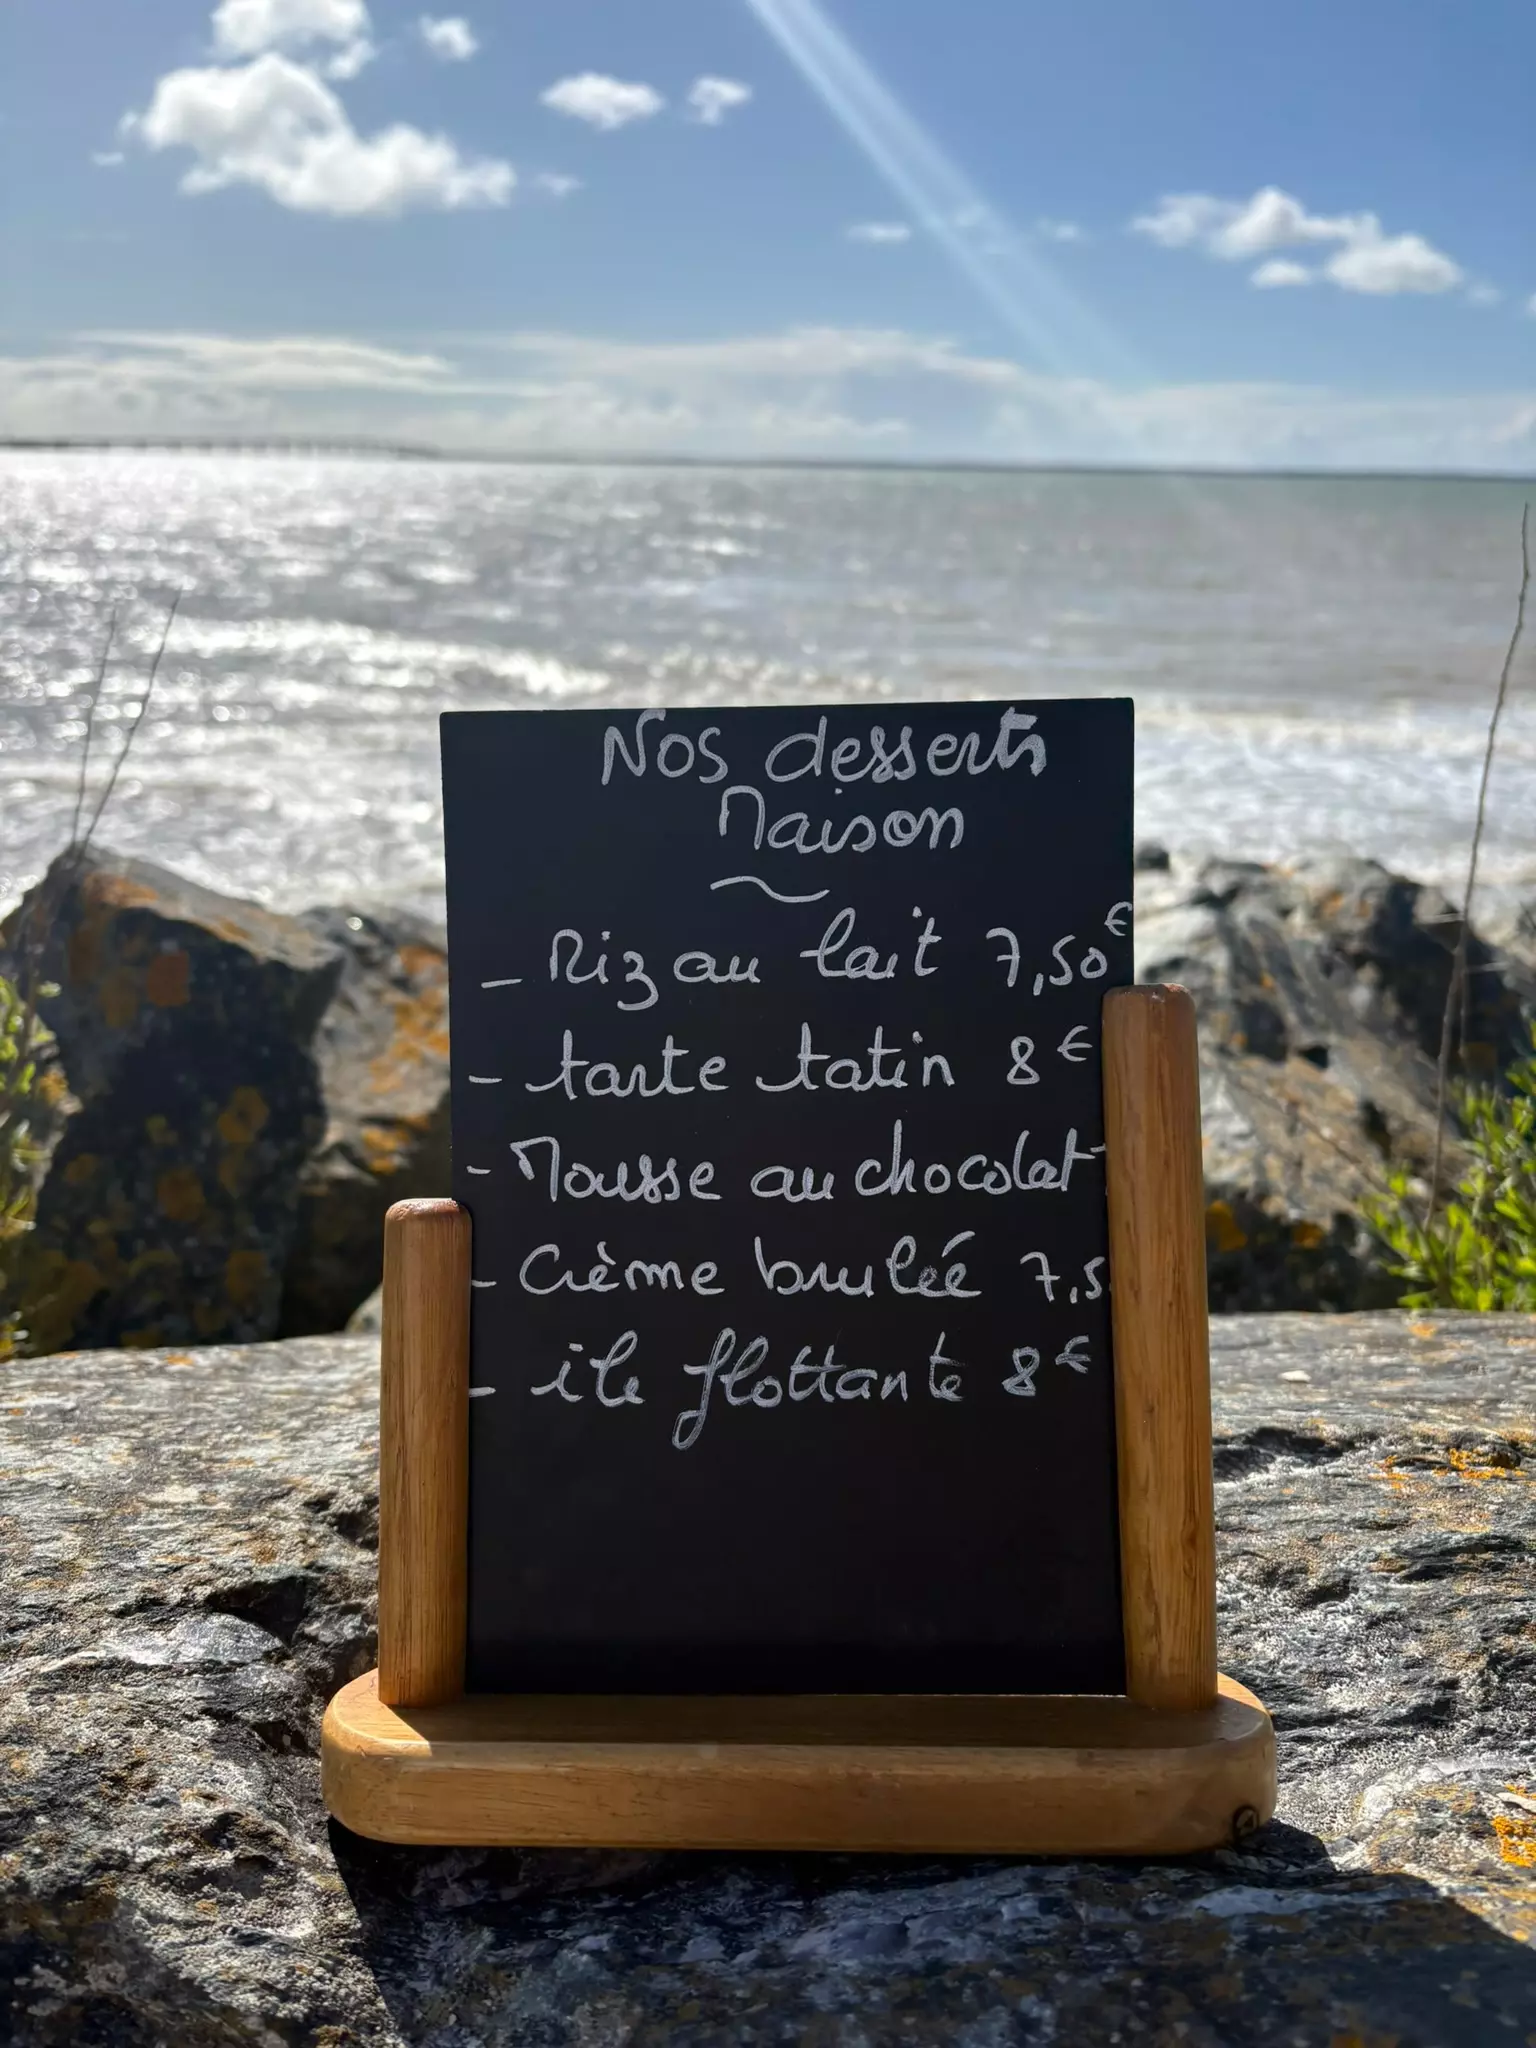 Nos desserts
Maison
~
- Riz au lait 7,50€
- tarte tatin 8€
- Mousse au chocolat
- Crème brulée 7,5
- ile flottante 8€